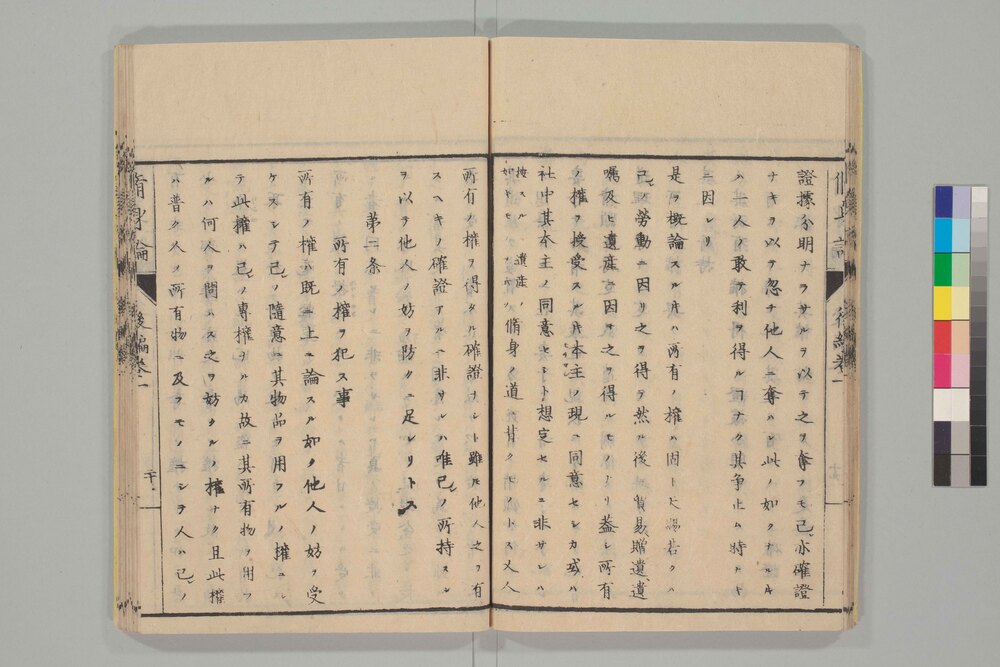 證據分明ナラサルヲ以テ之ヲ奪フモ己レ亦確證
ナキヲ以テ忽チ他人ニ奪ハル此ノ如クナルキ
ハ一人ノ敢テ利ヲ得ルコナク其争止ム時ナキ
ニ因レリ
是ヲ概論スル片ハ所有ノ權ハ固ト天賜若クハ
己レノ勞動ニ因リ之ヲ得テ然ル後貿易贈遺遺
囑及ヒ遺産ニ因テ之ヲ得ルモノナリ蓋シ所有
ノ權ヲ授受スル片本主ノ現ニ同意セシカ或ハ
社中其本主ノ同意セシト想定セルニ非サレハ
按スルニ遺産ノ如キヲ云フ 脩身ノ道ニ背クモノトス又人
脩身論 後編巻一
脩身論 後編巻一 二十
所有ノ權ヲ得タル確證ナシト雖モ他人之ヲ有
スヘキノ確證アルニ非サレハ唯己レノ所持スル
ヲ以テ他人ノ妨ヲ防クニ足レリトス
第二条
所有ノ權ヲ犯ス事
所有ノ權ハ既ニ上ニ論スル如ク他人ノ妨ヲ受
ケスシテ己レノ隨意ニ其物品ヲ用フルノ權ニシ
テ此權ハ己レノ專權タルカ故ニ其所有物ヲ用フ
ルハ何人ヲ問ハス之ヲ妨クルノ權ナク且此權
ハ普ク人ノ所有物ニ及フモノニシテ人ハ己レノ